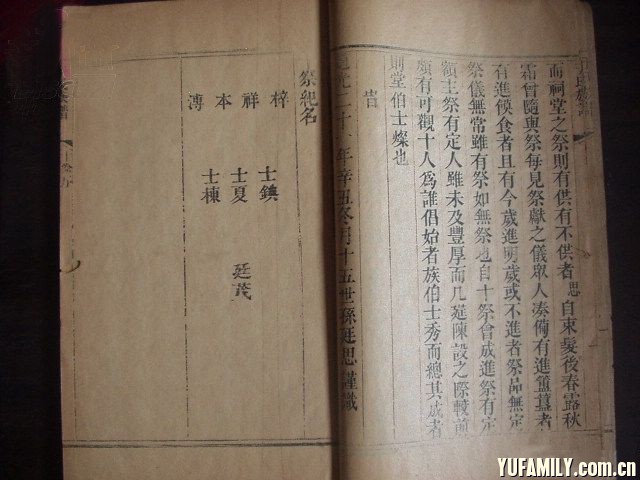 而祠堂之祭則有供有不供者思自束髮後春露秋
霜曾隨與祭每見祭獻之儀眾人湊備有進簠簋者
有進餕食者且有今歲進明歲或不進者祭品無定
祭儀無常雖有祭如無祭也自十祭會成進祭有定
額主祭有定人雖未及豐厚而几筵陳設之際較前
頗有可觀十人為誰倡始者族伯士秀而總其成者
則堂伯士燦也
旹
道光二十一年辛丑冬月十五世孫廷思謹識
祭紀名
梓 士鐭
祥 士夏 廷茂
本 士棟
溥
YUFAMILY.com.cn